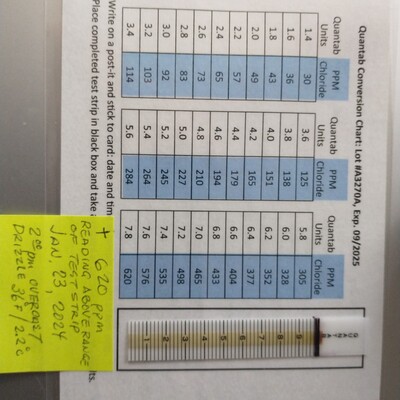 Quantab Conversion Chart: Lot #A3270A, Exp. 09/2025
Quantab Units PPM Chloride Quantab Units PPM Chloride Quantab Units PPM Chloride
1.4 30 3.6 125 5.8 305
1.6 36 3.8 138 6.0 328
1.8 42 4.0 151 6.2 352
2.0 49 4.2 165 6.4 377
2.2 57 4.4 179 6.6 404
2.4 65 4.6 194 6.8 433
2.6 73 4.8 210 7.0 465
2.8 83 5.0 227 7.2 498
3.0 92 5.2 245 7.4 535
3.2 103 5.4 264 7.6 576
3.4 114 5.6 284 7.8 620
Write on a post-it and stick to card: date and tim
Place completed test strip in black box and take
ts.
+ 620 PPM
READING ABOVE RANGE
OF TEST STRIP
JAN. 23, 2024
2:00 pm OVERCAST
DRIZZLE 36F/2.2C
QUANTAB
9
8
7
6
5
4
3
2
1